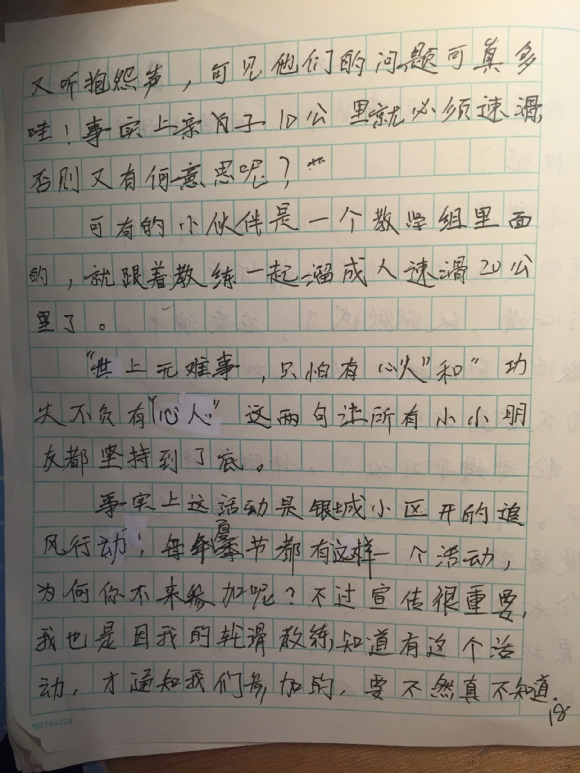 又听抱怨声，可见他们的问题可真多
哇！事实上亲月子10公里就必须速滑，
否则又有何意思呢？
可有的小伙伴是一个教学组里面
的，就跟着教练一起溜成人速滑20公
里了。
“世上无难事，只怕有心人”和“功
夫不负有心人”这两句让所有小小朋
友都坚持到了底。
事实上这活动是银城小区开的追
风行动，每年夏季节都有这样一个活动，
为何你不来参加呢？不过宣传很重要，
我也是因我的轮滑教练知道有这个活
动，才通知我们参加的，要不然真不知道.
18
16K14×224